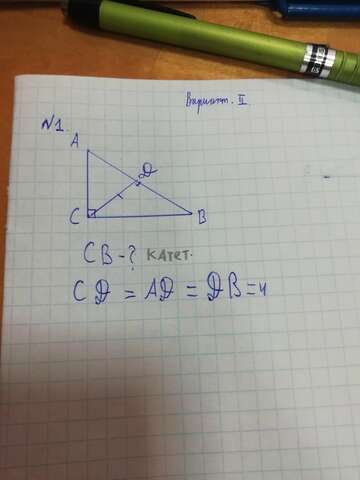 Вариант. II
№1.
A
D
C
B
CB-? катет.
CD = AD = DB = 4